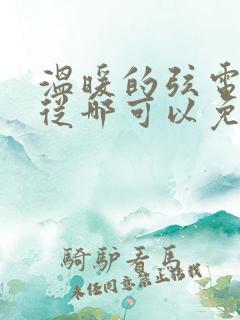 温暖的弦電
從哪可以免
騎驢看馬
未經同意禁止轉載